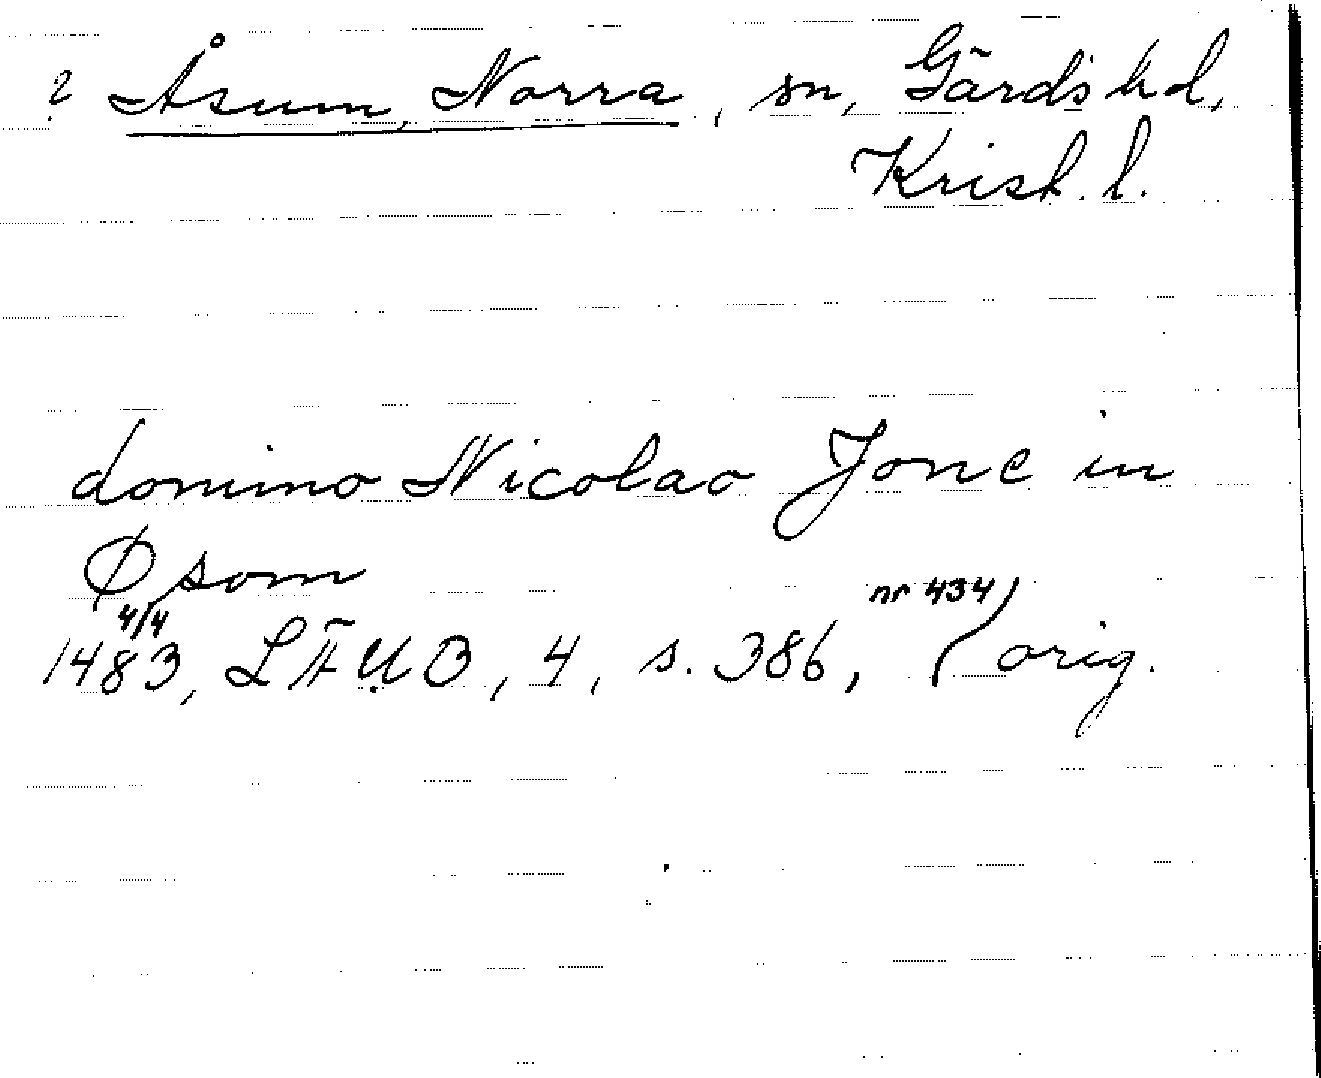 ? Åsum, Norra, sn, Gärds hd,
Krist. l.
domino Nicolao Jone in
Øsom
4/4
nr 434
1483, LÄUB, 4, s. 386, orig.